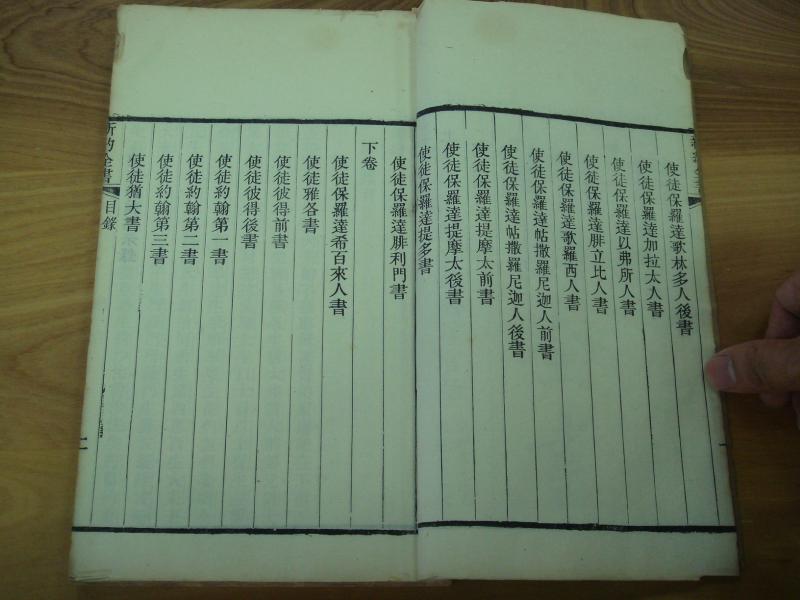 使徒保羅達歌林多人後書
使徒保羅達加拉太人書
使徒保羅達以弗所人書
使徒保羅達腓立比人書
使徒保羅達歌羅西人書
使徒保羅達帖撒羅尼迦人前書
使徒保羅達帖撒羅尼迦人後書
使徒保羅達提摩太前書
使徒保羅達提摩太後書
使徒保羅達提多書
使徒保羅達腓利門書
下卷
使徒保羅達希百來人書
使徒雅各書
使徒彼得前書
使徒彼得後書
使徒約翰第一書
使徒約翰第二書
使徒約翰第三書
使徒猶大書
新約全書 目錄